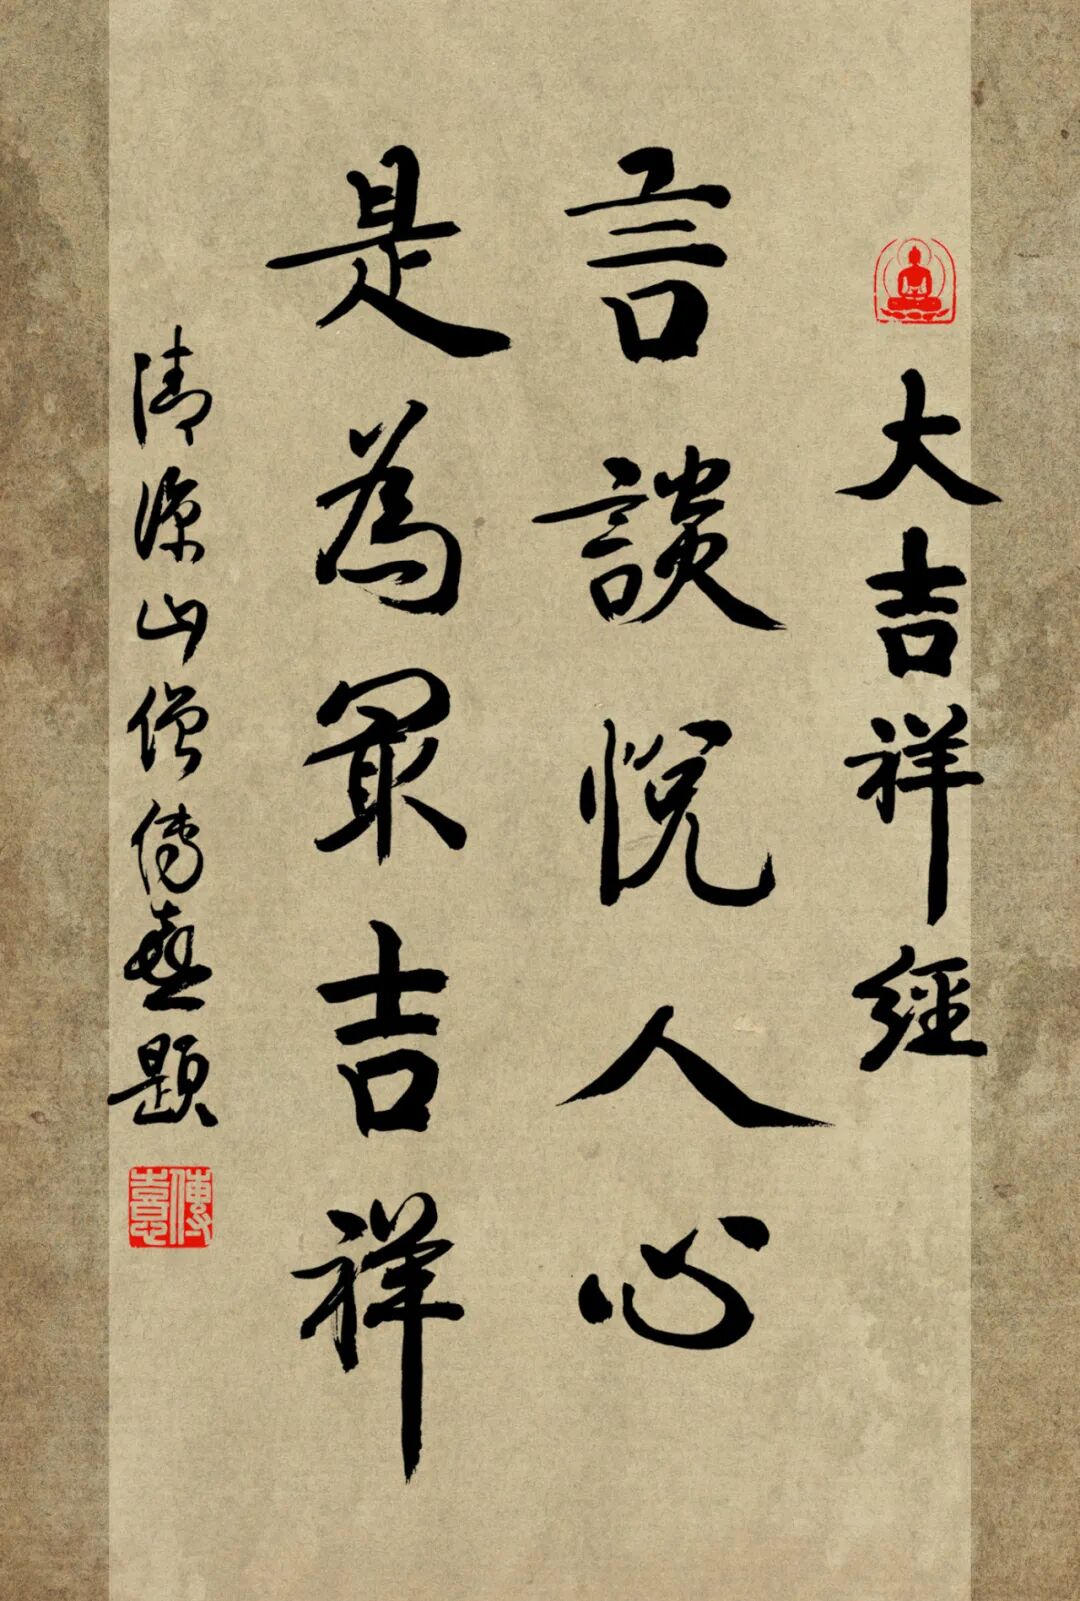 大吉祥經
言談悅人心
是為最吉祥
清源山僧傳喜題
傳喜